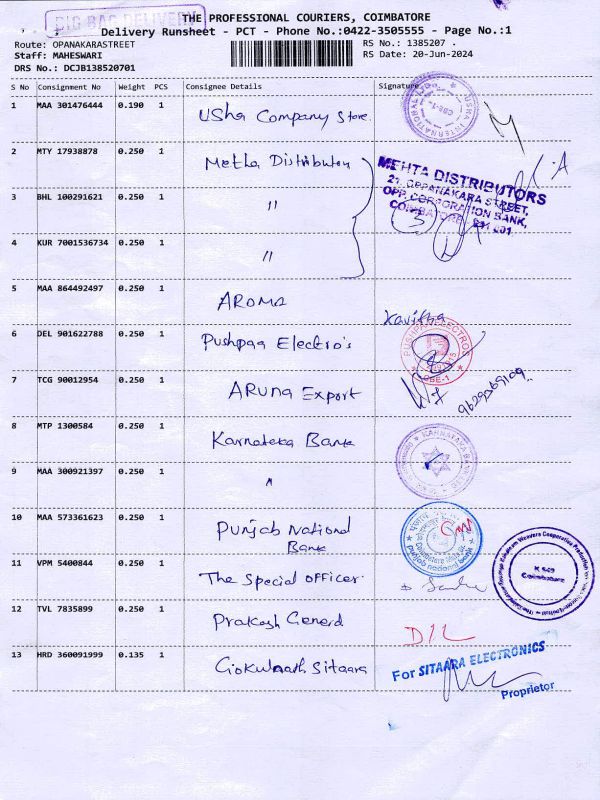 BIG BAG DELIVERY
THE PROFESSIONAL COURIERS, COIMBATORE
Delivery Runsheet - PCT - Phone No.:0422-3505555 - Page No.:1
Route: OPANAKARASTREET
RS No.: 1385207 .
Staff: MAHESWARI
RS Date: 20-Jun-2024
DRS No.: DCJB138520701
S No Consignment No Weight PCS Consignee Details Signature
1 MAA 301476444 0.190 1 Usha Company Store.
USHA INTERNATIONAL
CBE-1
2 MTY 17938878 0.250 1 Metha Distributon
MEHTA DISTRIBUTORS
21, OPPANAKARA STREET,
OPP. CORPORATION BANK,
COIMBATORE - 641 001
3
3 BHL 100291621 0.250 1 "
4 KUR 7001536734 0.250 1 "
5 MAA 864492497 0.250 1 AROMA
Kavitha
6 DEL 901622788 0.250 1 Pushpaa Electro's
PUSHPAA ELECTROS
CBE-1
7 TCG 90012954 0.250 1 ARUNA Export
9629369109
8 MTP 1300584 0.250 1 Karnateka Bank
KARNATAKA BANK
9 MAA 300921397 0.250 1 "
10 MAA 573361623 0.250 1 Punjab National
Bank
punjab national bank
11 VPM 5400844 0.250 1 The Special Officer.
K 529
Coimbatore
12 TVL 7835899 0.250 1 Prakash Generd
DIL
13 HRD 360091999 0.135 1 Gokulnath Sitaara
For SITAARA ELECTRONICS
Proprietor